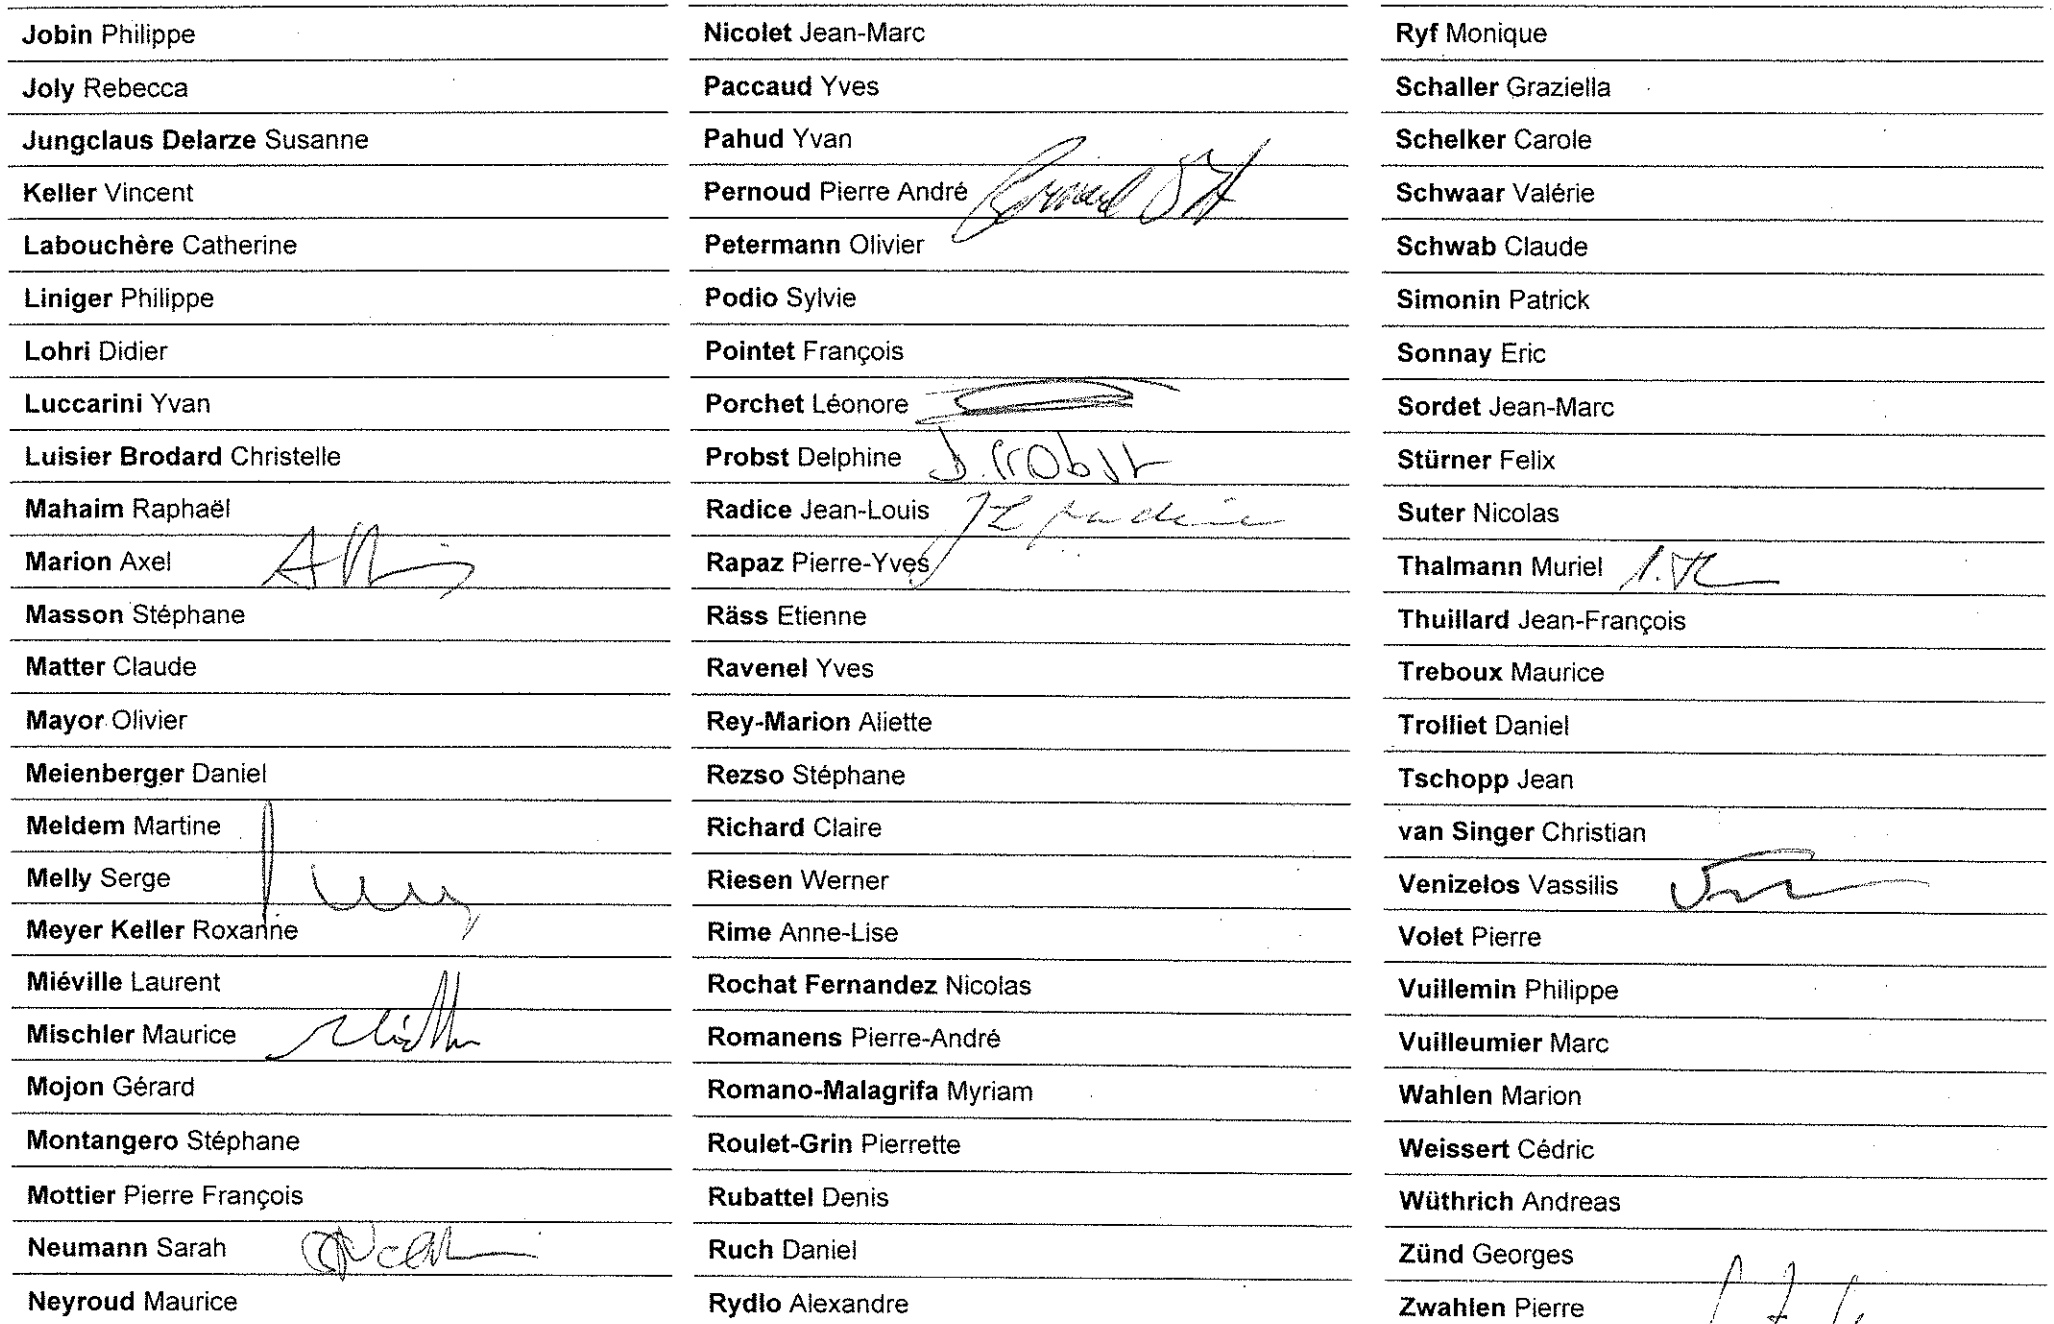 Jobin Philippe
Joly Rebecca
Jungclaus Delarze Susanne
Keller Vincent
Labouchère Catherine
Liniger Philippe
Lohri Didier
Luccarini Yvan
Luisier Brodard Christelle
Mahaim Raphaël
Marion Axel
Masson Stéphane
Matter Claude
Mayor Olivier
Meienberger Daniel
Meldem Martine
Melly Serge
Meyer Keller Roxanne
Miéville Laurent
Mischler Maurice
Mojon Gérard
Montangero Stéphane
Mottier Pierre François
Neumann Sarah
Neyroud Maurice
Nicolet Jean-Marc
Paccaud Yves
Pahud Yvan
Pernoud Pierre André
Petermann Olivier
Podio Sylvie
Pointet François
Porchet Léonore
Probst Delphine D. Probst
Radice Jean-Louis JL Radice
Rapaz Pierre-Yves
Räss Etienne
Ravenel Yves
Rey-Marion Aliette
Rezso Stéphane
Richard Claire
Riesen Werner
Rime Anne-Lise
Rochat Fernandez Nicolas
Romanens Pierre-André
Romano-Malagrifa Myriam
Roulet-Grin Pierrette
Rubattel Denis
Ruch Daniel
Rydlo Alexandre
Ryf Monique
Schaller Graziella
Schelker Carole
Schwaar Valérie
Schwab Claude
Simonin Patrick
Sonnay Eric
Sordet Jean-Marc
Stürner Felix
Suter Nicolas
Thalmann Muriel
Thuillard Jean-François
Treboux Maurice
Trolliet Daniel
Tschopp Jean
van Singer Christian
Venizelos Vassilis
Volet Pierre
Vuillemin Philippe
Vuilleumier Marc
Wahlen Marion
Weissert Cédric
Wüthrich Andreas
Zünd Georges
Zwahlen Pierre